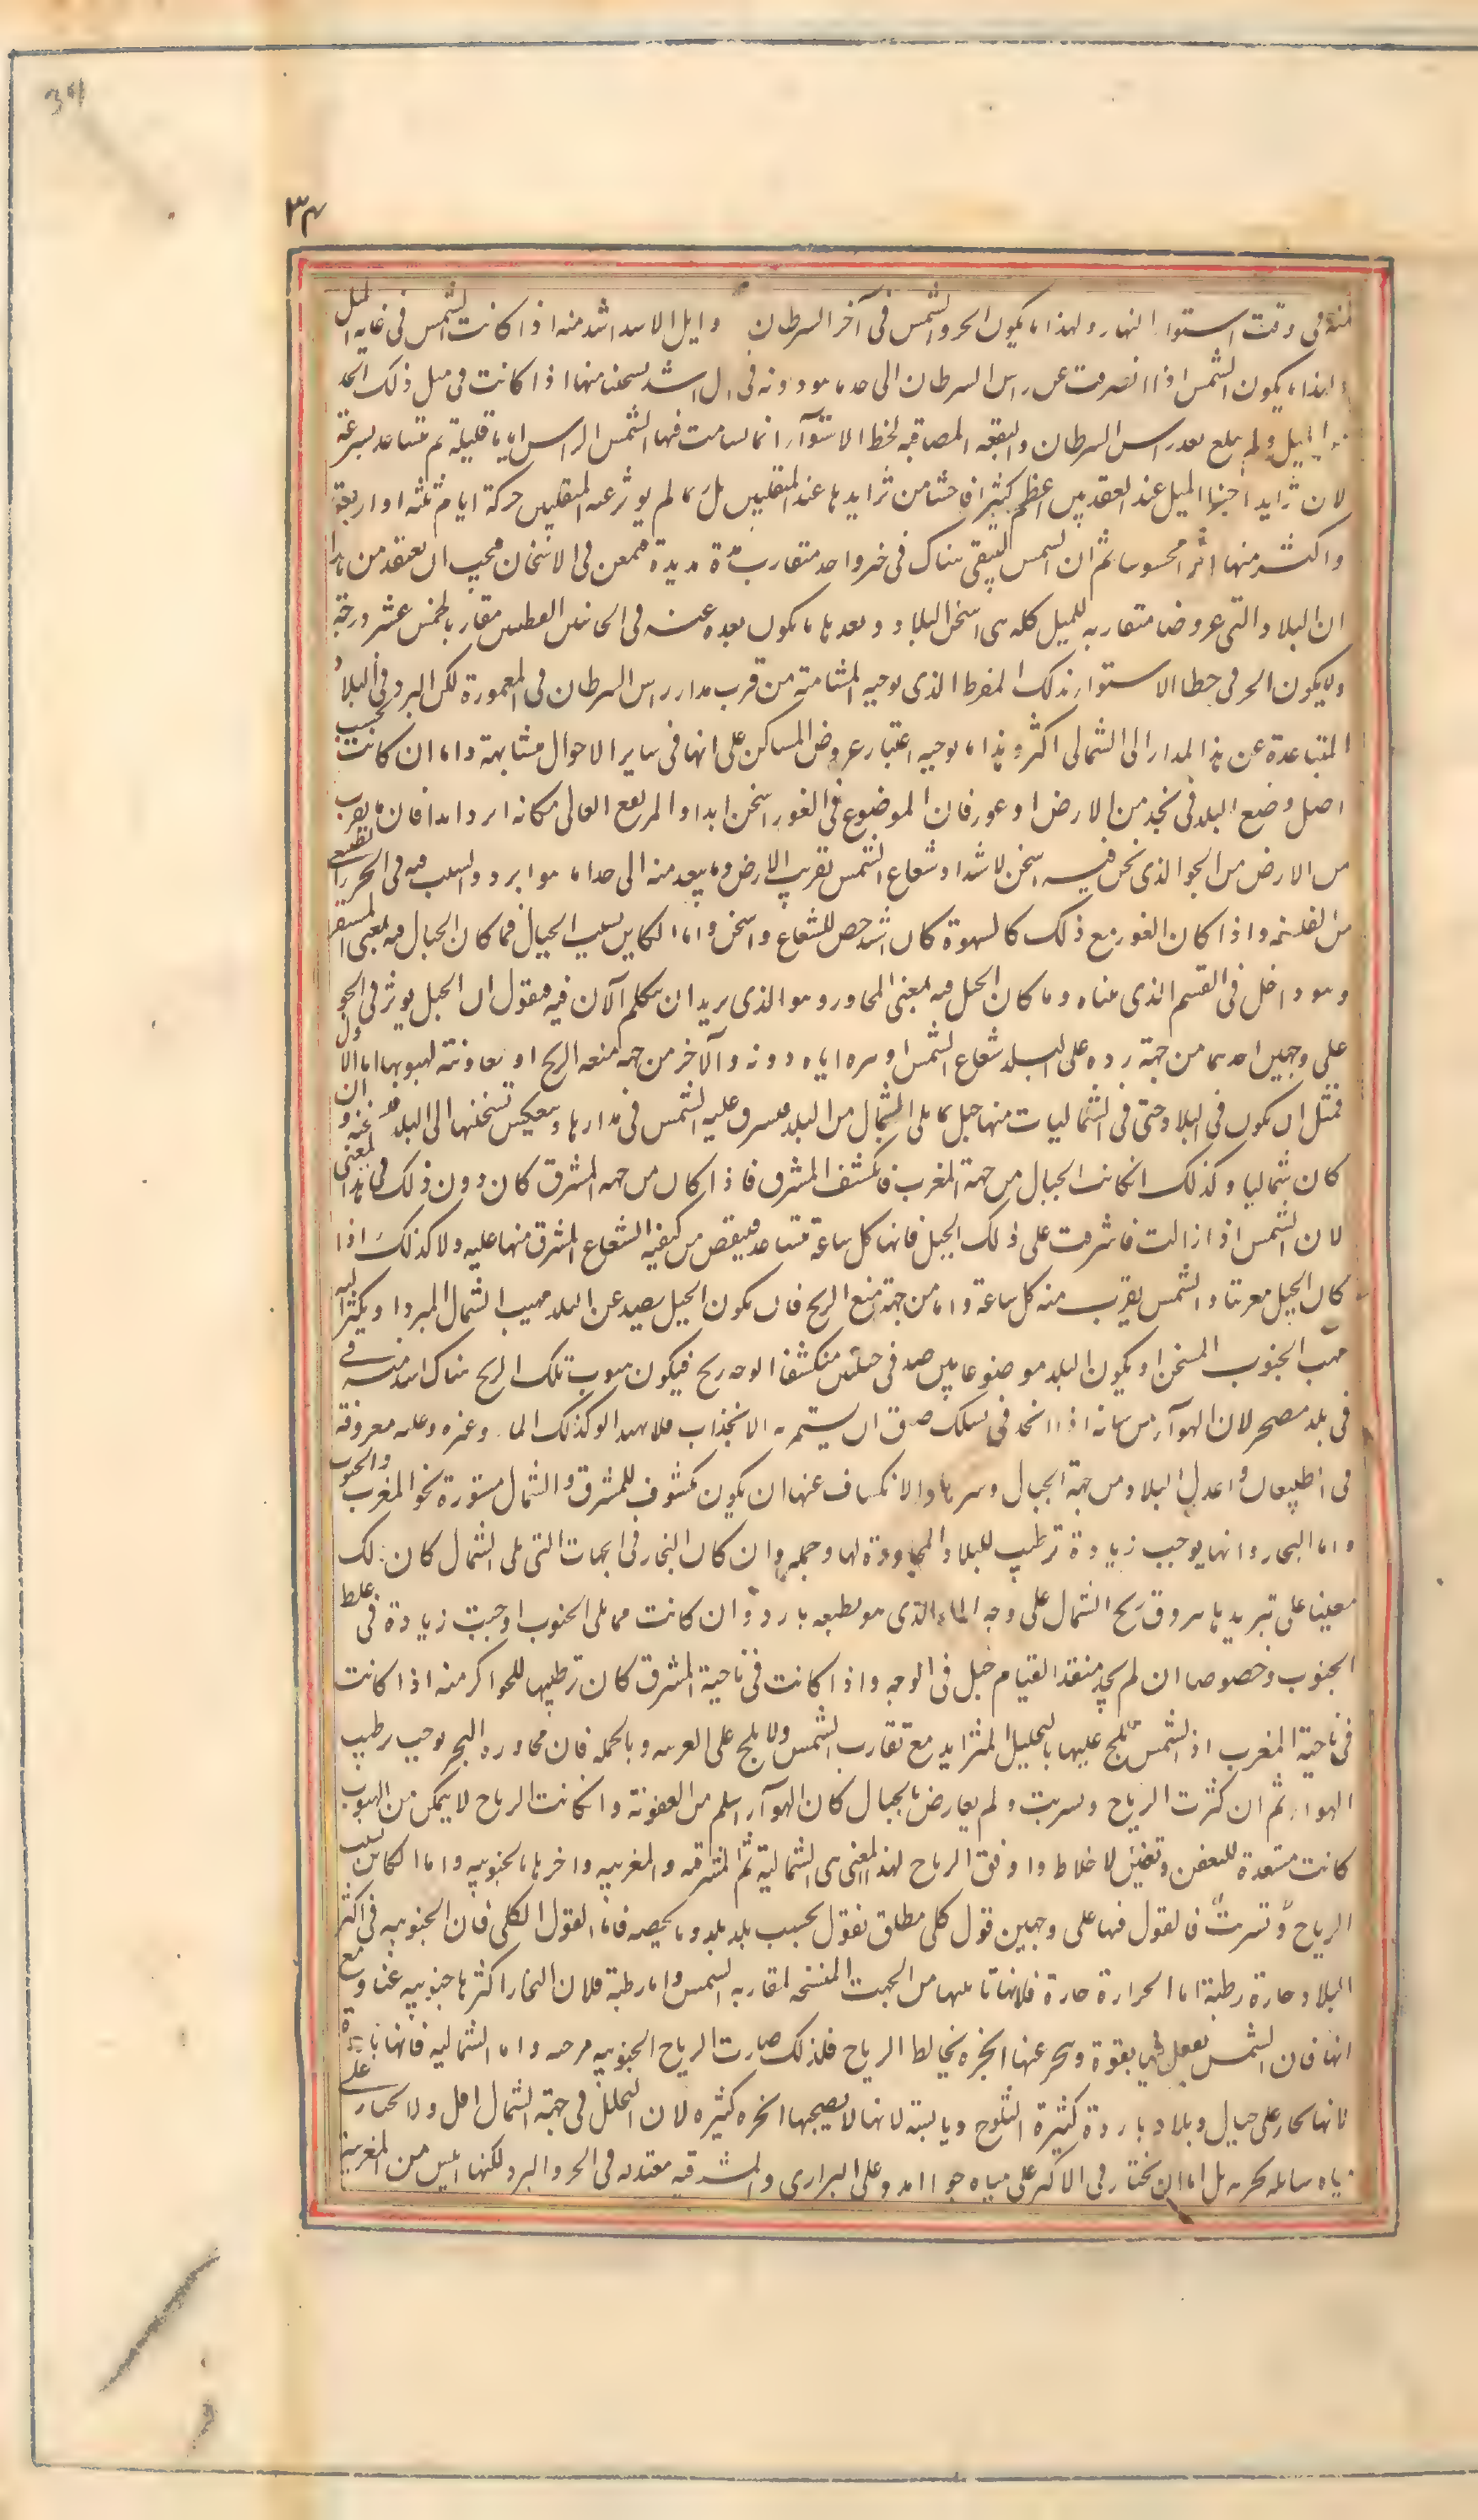 ٣٤
منه فى وقت استواء النهار ولهذا ما يكون الحر والشمس فى آخر السرطان وايل الاسد اشد منه اذا كانت الشمس فى غاية الميل
ولهذا ما يكون الشمس اذا انصرفت عن راس السرطان الى حد ما هو دونه فى الميل اشد تسخينا منها اذا كانت فى مثل ذلك الحد
من الميل ولم يبلغ بعد راس السرطان والبقعه المصاقبه لخط الاستوآء انما تسامت فيها الشمس الراس اياما قليلة ثم تتباعد بسرعة
لان تزايد اجزا الميل عند العقدتين اعظم كثيرا فاحشا من تزايدها عند المنقلبين بل ربما لم يوثر عند المنقلبين حركة ايام ثلثه او اربعة
واكثر منها اثرا محسوسا ثم ان الشمس تبقى هناك فى حيز واحد متقارب مدة مديدة فيمعن فى الاسخان فيجب ان يعتقد من هذا
ان البلاد التى عروضها متقاربه للميل كله هى اسخن البلاد وبعدها ما يكون بعده عنه فى الجانبين القطبين مقاربا لخمس عشر درجة
ولا يكون الحر فى خط الاستواء بذلك المفرط الذى يوجبه المسامتة من قرب مدار راس السرطان فى المعمورة لكن البرد فى البلاد
المتباعدة عن هذا المدار الى الشمالى اكثر وهذا ما يوجبه اعتبار عروض المساكن على انها فى ساير الاحوال متشابهة واما ان كانت بحسب
اصل وضع البلد فى نجد من الارض او غور فان الموضوع فى الغور اسخن ابدا والمرتفع العالى مكانه ابرد ابدا فان ما يقرب
من الارض من الجو الذى نحن فيه اسخن لاشتداد شعاع الشمس بقرب الارض وما يبعد منه الى حد ما هو ابرد والسبب فيه فى الجزء الطبيعى
من الفلسفه واذا كان الغور مع ذلك كالهوة كان اشد حصر للشعاع واسخن واما الكاين بسبب الجبال فما كان الجبال فيه بمعنى المستقر
وهو داخل فى القسم الذى بيناه وما كان الجبل فيه بمعنى المجاور وهو الذى نريد ان نتكلم الآن فيه فنقول ان الجبل يوثر فى الجو
على وجهين احدهما من جهة رده على البلد شعاع الشمس او ستره اياه دونه والآخر من جهة منعه الريح او معاونته لهبوبها اما الاول
فمثل ان يكون فى البلاد حتى فى الشماليات منها جبل مما يلى الشمال من البلد فتشرق عليه الشمس فى مدارها وينعكس تسخينها الى البلد فتسخنه وان
كان شماليا وكذلك ان كانت الجبال من جهة المغرب فانكشف المشرق فاذا كان من جهة المشرق كان دون ذلك فى هذا المعنى
لان الشمس اذا زالت فاشرقت على ذلك الجبل فانها كل ساعة تتباعد فينقص من كيفية الشعاع المشرق منها عليه ولا كذلك اذا
كان الجبل مغربيا والشمس يقرب منه كل ساعة واما من جهة منع الريح فان يكون الجبل يصد عن البلد مهب الشمال المبرد او يكثر اليه
مهب الجنوب المسخن او يكون البلد موضوعا بين صدفى جبلين منكشفا لوجه ريح فيكون هبوب تلك الريح هناك اشد منه فى
فى بلد مصحر لان الهوآء من شانه اذا انجذب فى مسلك ضيق ان يستمر به الانجذاب فلا يهدا وكذلك الماء وغيره وعلته معروفة
فى الطبيعيات واعدل البلاد من جهة الجبال وسترها والانكشاف عنها ان يكون مكشوف للمشرق والشمال مستورة نحو المغرب والجنوب
واما البحار فانها يوجب زيادة ترطيب للبلاد المجاورة لها وجملة وان كان البحار فى الجهات التى تلى الشمال كان ذلك
معينا على تبريدها بمروق ريح الشمال على وجه الماء الذى هو بطبعه بارد وان كانت مما يلى الجنوب اوجبت زيادة فى غلظ
الجنوب وخصوصا ان لم يجد منفذا لقيام جبل فى الوجه واذا كانت فى ناحية المشرق كان ترطيبها للجو اكثر منه اذا كانت
فى ناحية المغرب اذ الشمس تلح عليها بالتحليل المتزايد مع تقارب الشمس ولا تلح على الغربية وبالجملة فان مجاورة البحر يوجب ترطيب
الهواء ثم ان كثرت الرياح وتسربت ولم يعارض بالجبال كان الهوآء اسلم من العفونة وان كانت الرياح لا يتمكن من الهبوب
كانت مستعدة للتعفن وتعفين الاخلاط واوفق الرياح لهذا المعنى هى الشمالية ثم المشرقيه والمغربيه واضرها الجنوبيه واما الكاين بسبب
الرياح وتسربت فالقول فيها على وجهين قول كلى مطلق نقول بحسب بلد بلد وما يخصه فاما القول الكلى فان الجنوبيه فى اكثر
البلاد حارة رطبة اما الحرارة حارة فلانها تاتيها من الجهت المتسخنه لمقاربه الشمس واما رطبة فلان البخار اكثرها جنوبيه عنا ومع
انها فان الشمس تفعل فيها بقوة ويبخر عنها ابخرة يخالط الرياح فلذلك صارت الرياح الجنوبيه مرخيه واما الشماليه فانها باردة
لانها تجتاز على جبال وبلاد باردة كثيرة الثلوج ويابسة لانها لا يصحبها ابخرة كثيرة لان التحلل فى جهة الشمال اقل ولا تجتاز على
مياه سايله بحريه بل اما ان تجتاز فى الاكثر على مياه جوامد وعلى البرارى والمشرقيه معتدله فى الحر والبرد لكنها ايبس من المغربية